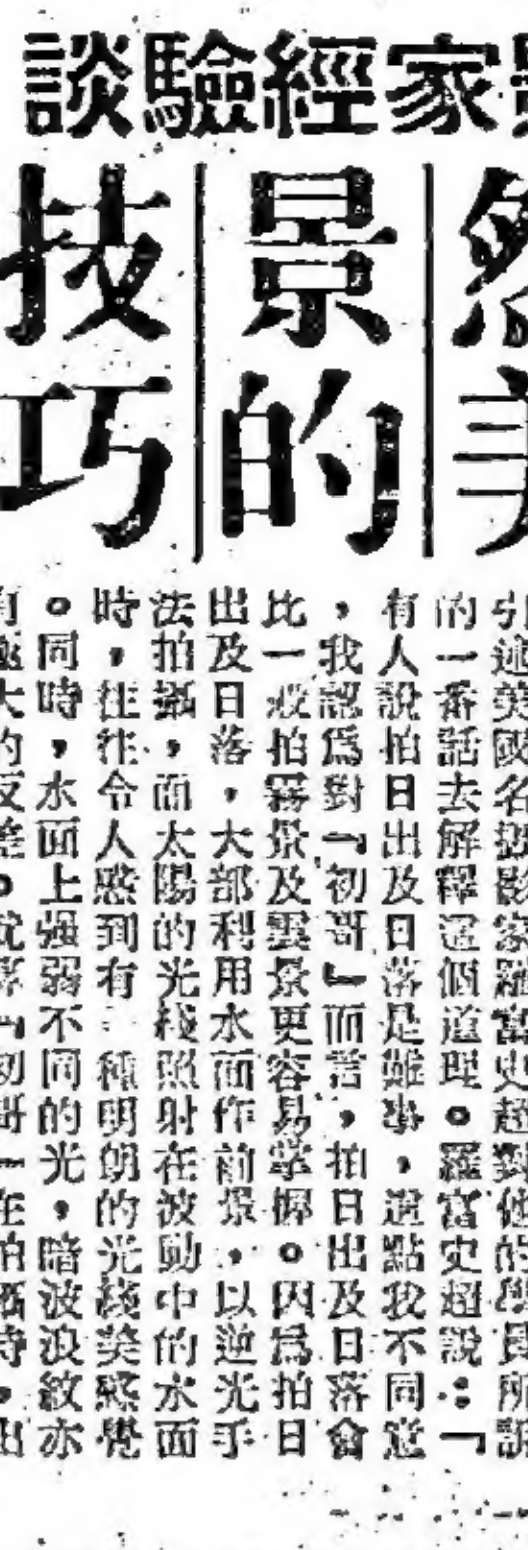 家經驗談
然美
景的
技巧
引述美國名攝影家羅富史超對他的學員所訴
的一番話去解釋這個道理。羅富史超說：「
有人說拍日出及日落是難事，這點我不同意
，我認爲對『初哥』而言，拍日出及日落會
比一般拍霧景及雲景更容易掌握。因爲拍日
出及日落，大部利用水面作前景，以逆光手
法拍攝，而太陽的光綫照射在波動中的水面
時，往往令人感到有一種明朗的光綫美感覺
。同時，水面上强弱不同的光，暗波浪紋亦
有極大的反差。就算『初哥』在拍攝時，出